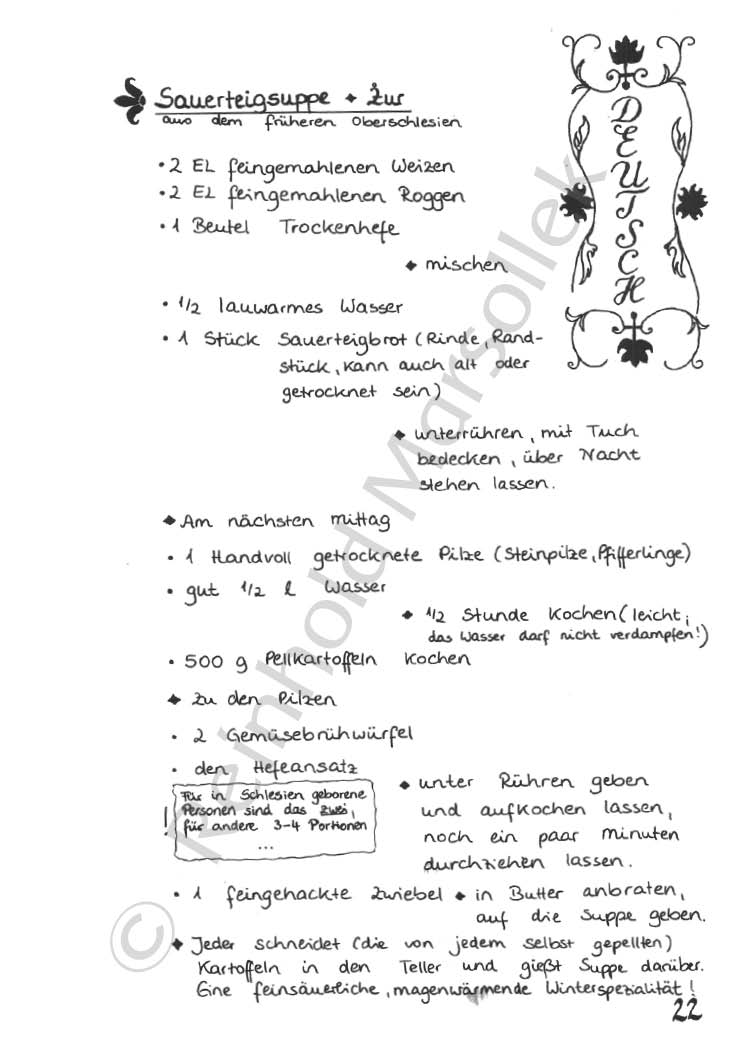 Sauerteigsuppe ◆ Żur
aus dem früheren Oberschlesien
DEUTSCH
• 2 EL feingemahlenen Weizen
• 2 EL feingemahlenen Roggen
• 1 Beutel Trockenhefe
◆ mischen
• 1/2 lauwarmes Wasser
• 1 Stück Sauerteigbrot (Rinde, Rand-
stück, kann auch alt oder
getrocknet sein)
◆ unterrühren, mit Tuch
bedecken, über Nacht
stehen lassen.
◆ Am nächsten Mittag
• 1 Handvoll getrocknete Pilze (Steinpilze, Pfifferlinge)
• gut 1/2 l Wasser
◆ 1/2 Stunde Kochen (leicht;
das Wasser darf nicht verdampfen!)
• 500 g Pellkartoffeln kochen
◆ zu den Pilzen
• 2 Gemüsebrühwürfel
• den Hefeansatz
◆ unter Rühren geben
und aufkochen lassen,
noch ein paar Minuten
durchziehen lassen.
! Für in Schlesien geborene
Personen sind das zwei,
für andere 3-4 Portionen
...
• 1 feingehackte Zwiebel ◆ in Butter anbraten,
auf die Suppe geben.
◆ Jeder schneidet (die von jedem selbst gepellten)
Kartoffeln in den Teller und gießt Suppe darüber.
Eine feinsäuerliche, magenwärmende Winterspezialität!
22
© Reinhold Marsollek